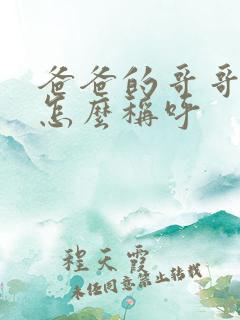 爸爸的哥哥
怎麼稱呼
程天霞
未經同意禁止轉載